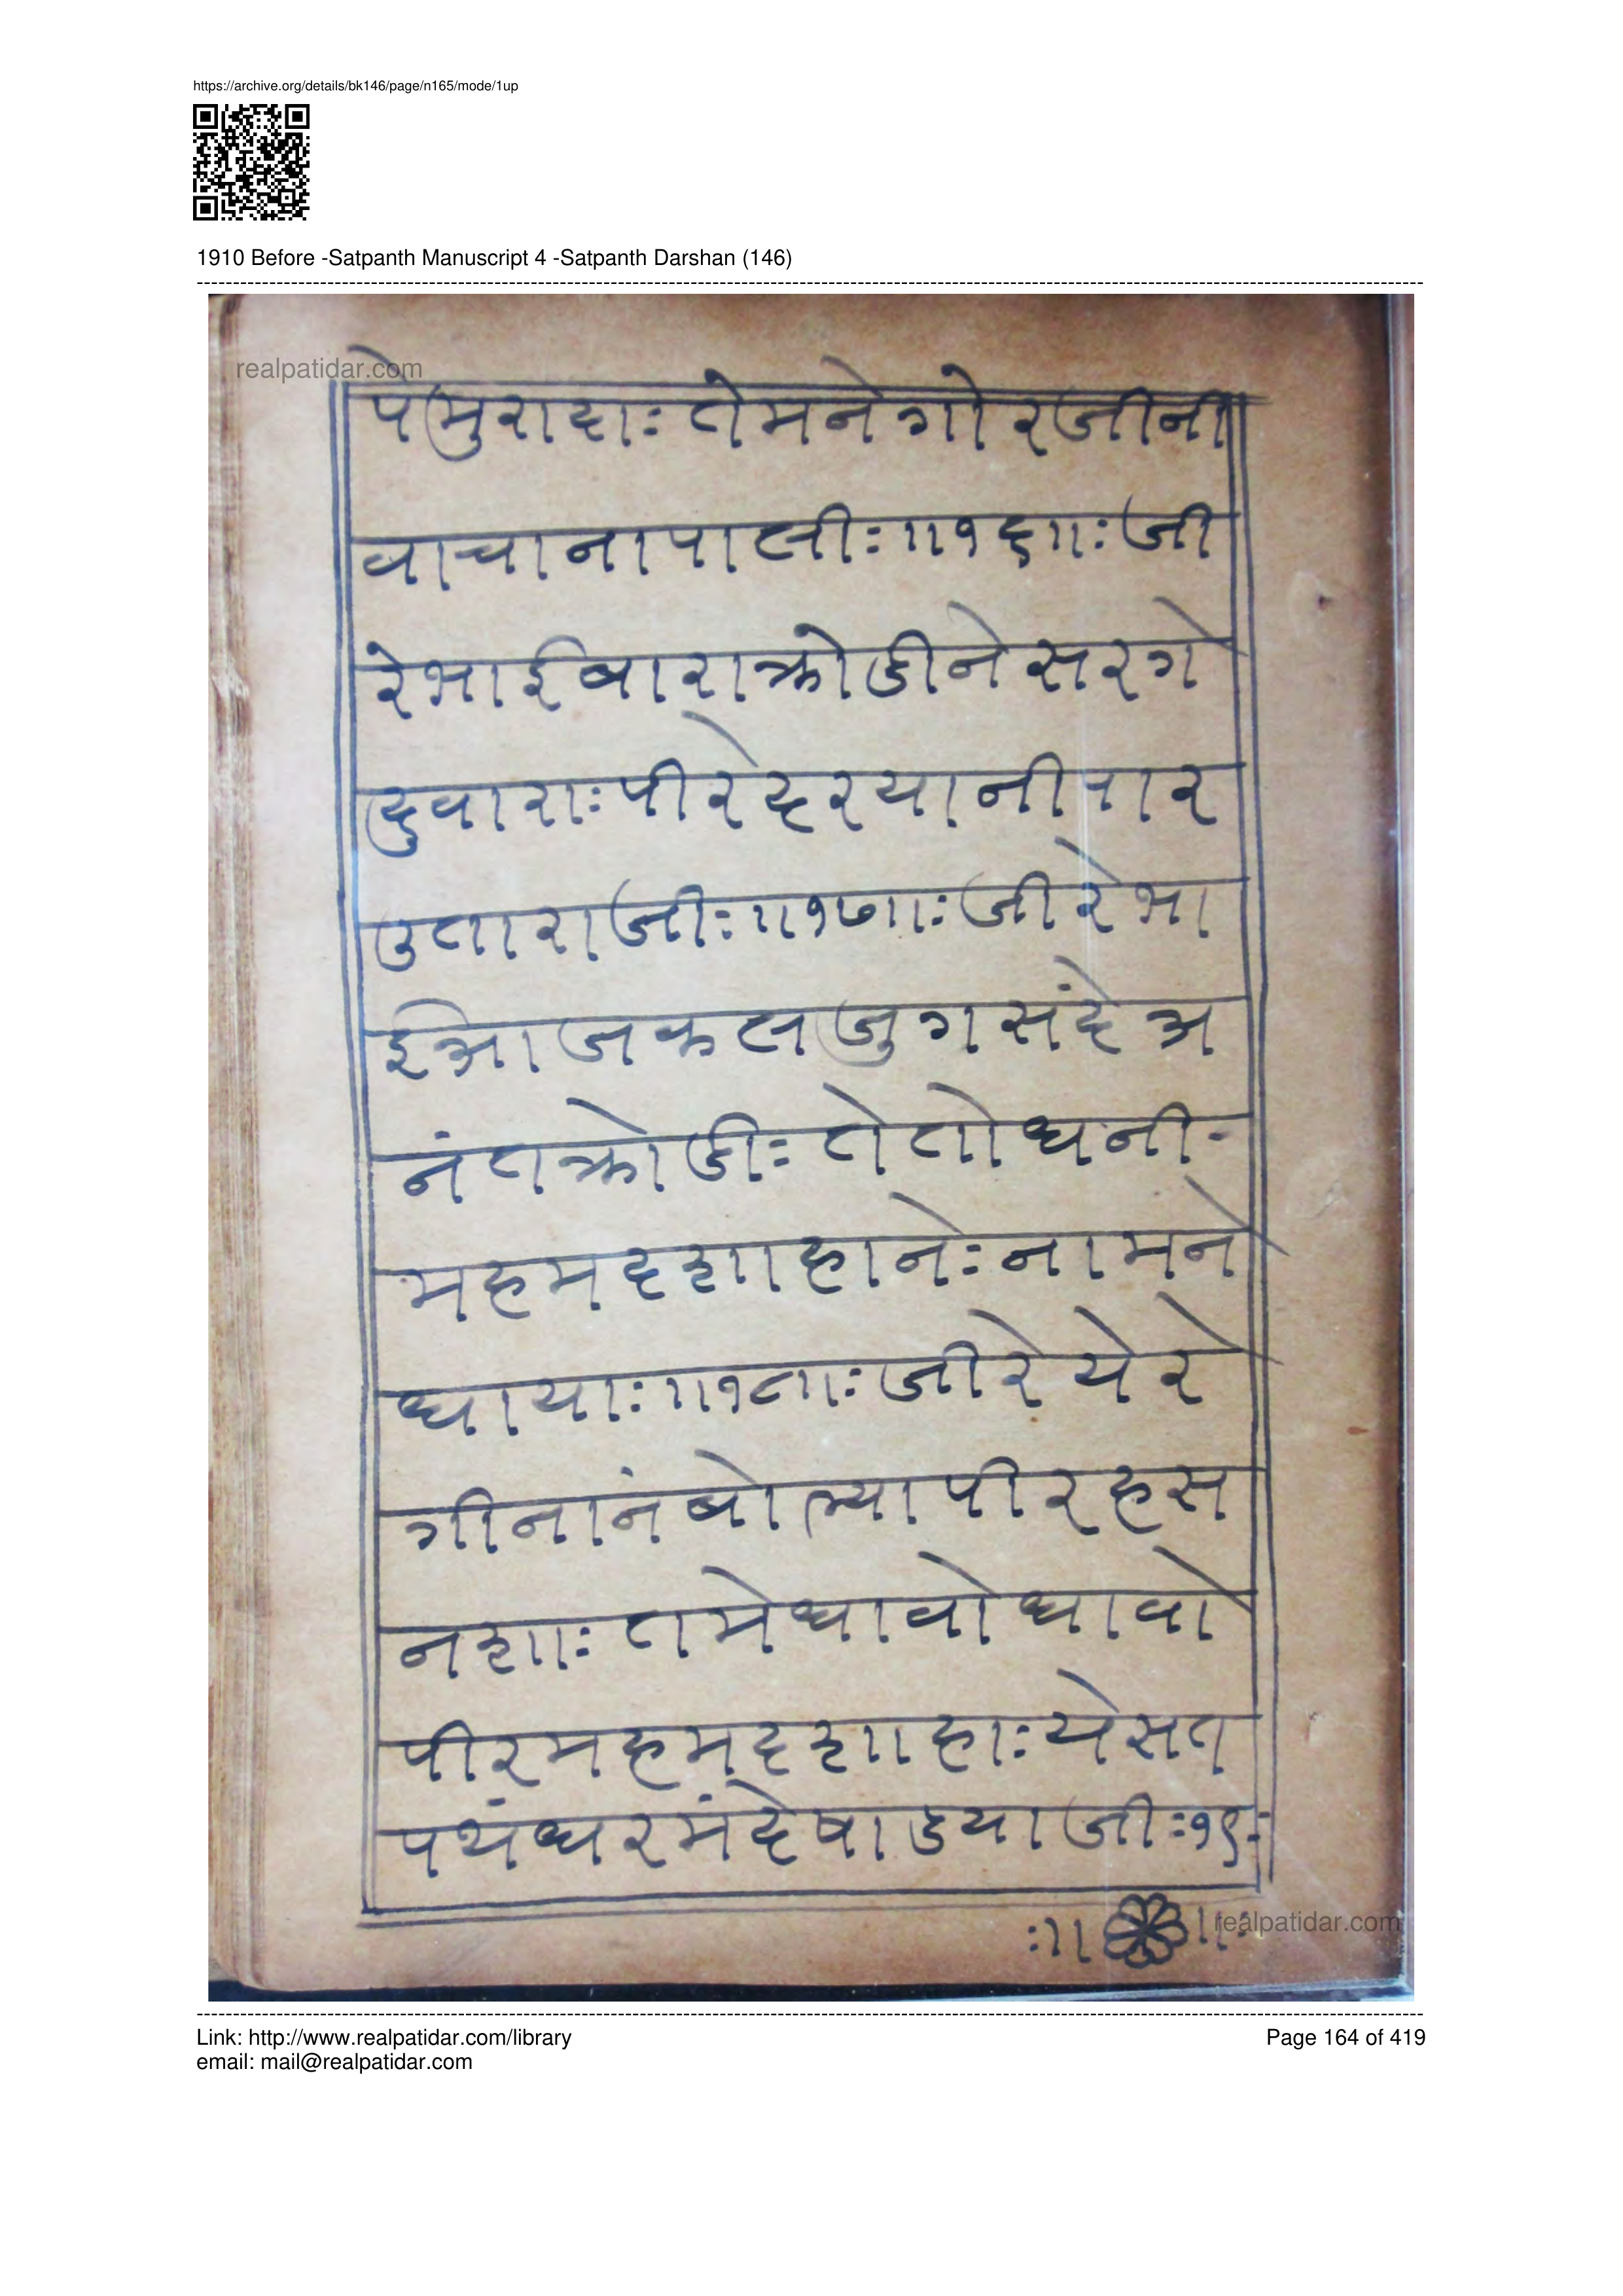 https://archive.org/details/bk146/page/n165/mode/1up
1910 Before -Satpanth Manuscript 4 -Satpanth Darshan (146)
realpatidar.com
पेमुरादाः तेमने गोरजीनी
वाचानापालीः॥१६॥ः जी
रे भाई बारा क्रोडीने सरगे
दुवाराः पीरे दरयानी पार
उताराजीः॥१७॥ः जी रे भा
ई आज कलजुग मंदे अ
नंत क्रोडीः ते तो धनी-
महमदशाहानेः नामने
धायाः॥१८॥ः जीरे येरे
गीनांन बोल्या पीर हस
नशाः तमे धावो धावो
पीर महमदशाहाः ये सत
पंथ धरमंदेषाडयाजीः१९-
:॥ ॥:
realpatidar.com
Link: http://www.realpatidar.com/library
Page 164 of 419
email: mail@realpatidar.com